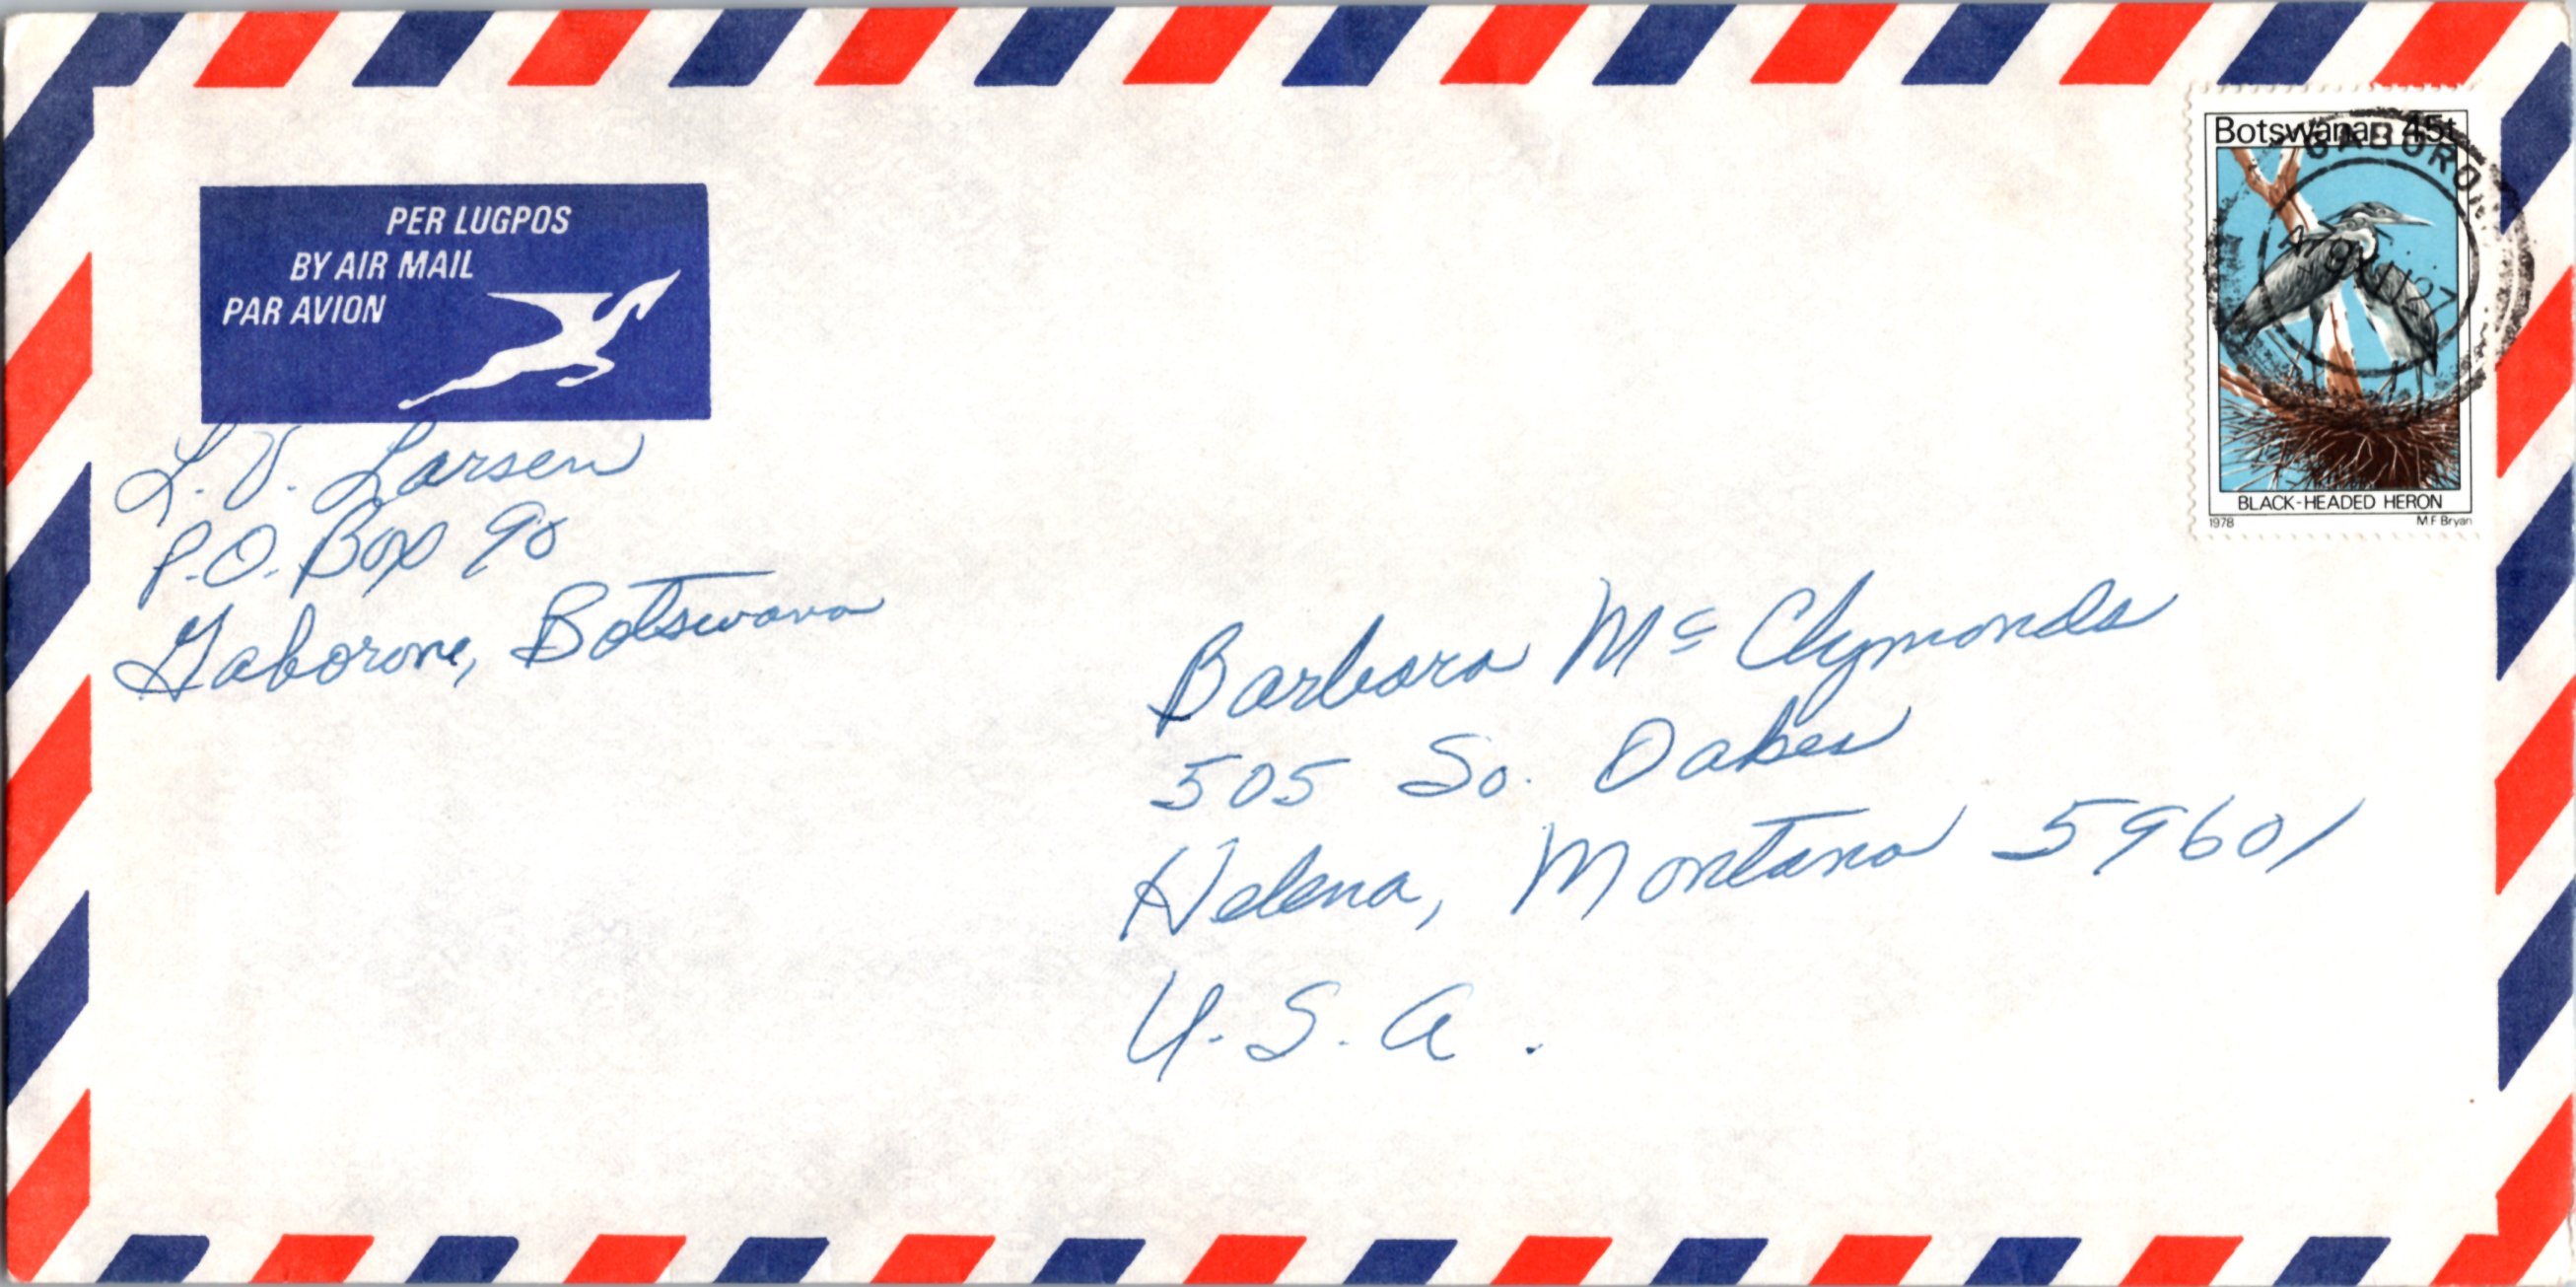 PER LUGPOS
BY AIR MAIL
PAR AVION
Botswana 45t
GABORON
BLACK-HEADED HERON
1978 M.F Bryan
L. V. Larsen
P.O. Box 90
Gaborone, Botswana
Barbara Mc Clymonds
505 So. Oakes
Helena, Montana 59601
U. S. A.